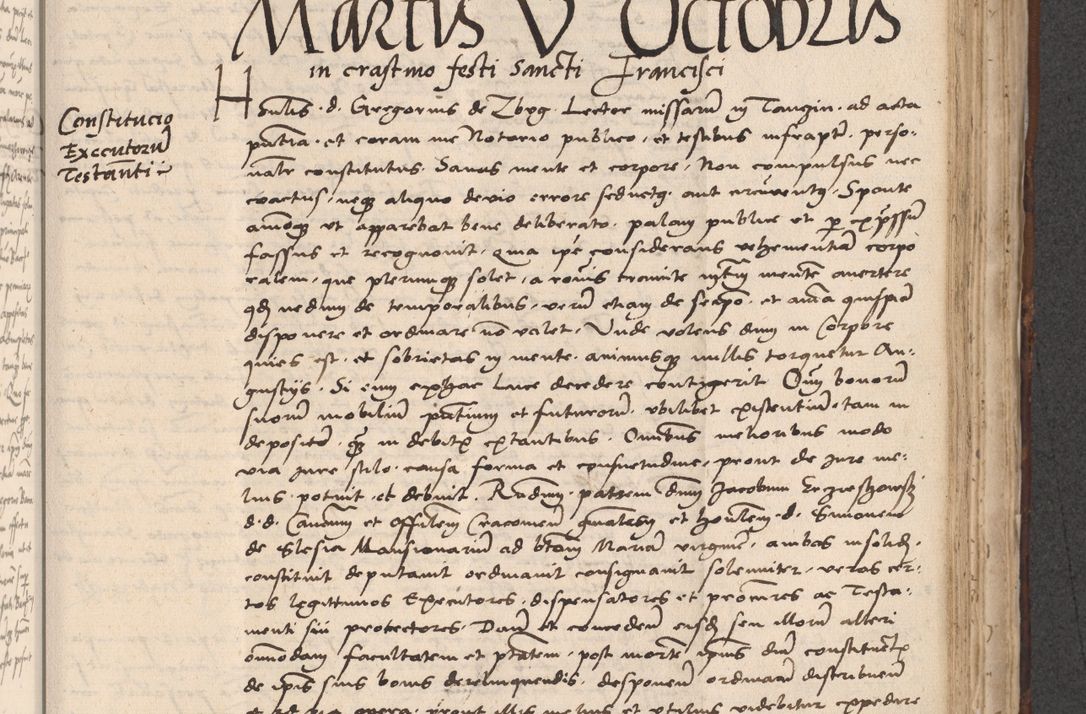 Martis V Octobris
in crastino festi Sancti Francisci
Constitucio
Executorum
Testamenti
Honlis d. Gregorius de Zbyg Lector missarum in Tanczin ad acta
pntia et coram me Notario publico et testibus infraptis perso-
nalr constitutus. Sanus mente et corpore, Non compulsus nec
coactus, neqz aliquo devio errore seductg aut circumventg. Sponte
animoqz ut apparebat bene deliberato, palam publice ut per expressum
fassus et recognovit. Quia ipse considerans vehementiam corpo
ralem, que plerumqz solet, a rationis tramite mentem avertere
qd nedum de temporalibus, verum etiam de seipso et anima quispiam
disponere et ordinare non valet. Unde volens dum in Corpore
quies est, et sobrietas in mente, animusqz nullis torquetur An-
gustiis. Si eum ex hac luce decedere contigerit. Qum bonorum
suorum mobilium pntium et futurorum, ubilibet existentium, tam in
depositis, quam in debitis extantibus. Omnibus melioribus modo
via jure stilo causa forma et consuetudine, prout de jure me-
lius potuit et debuit. Rndum patrem dnum Jacobum
d. d. Canonicum et Offilem Cracovien gnalem et honlem d. Simonem
de Slesia Mansionarium ad btam Mariam virginem, ambos insolid.
constituit deputavit ordinavit consignavit solemniter, veros cer-
tos legittimos Executores, dispensatores et provisores ac Testa-
menti sui protectores. Dans et concedens eisdem seu illorum alteri
omnodam facultatem et ptatem, post mortem ipius dni constituentis
de ipis suis bonis derelinquendis, disponendi ordinandi distribuendi
opera, prout illis melius et utilius videbitur expedire